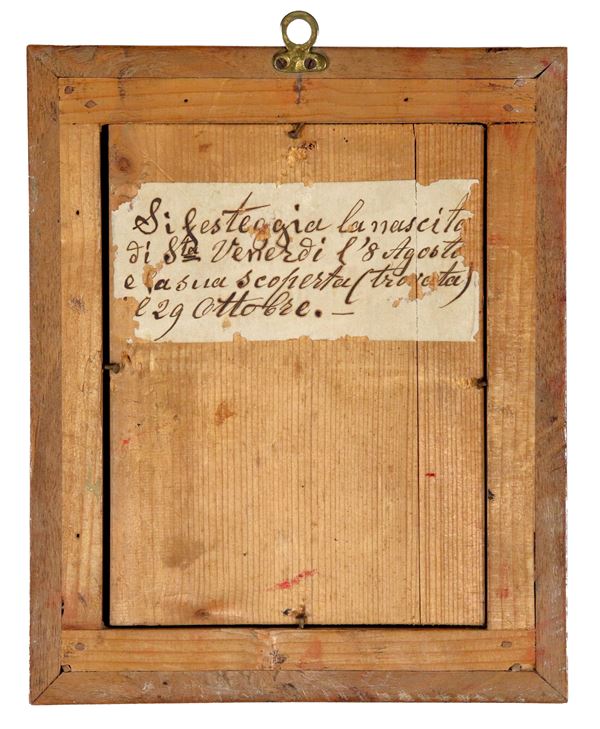 Si festeggia la nascita
di Sta Venerdi l'8 Agosto
e la sua scoperta (trovata)
il 29 Ottobre. —